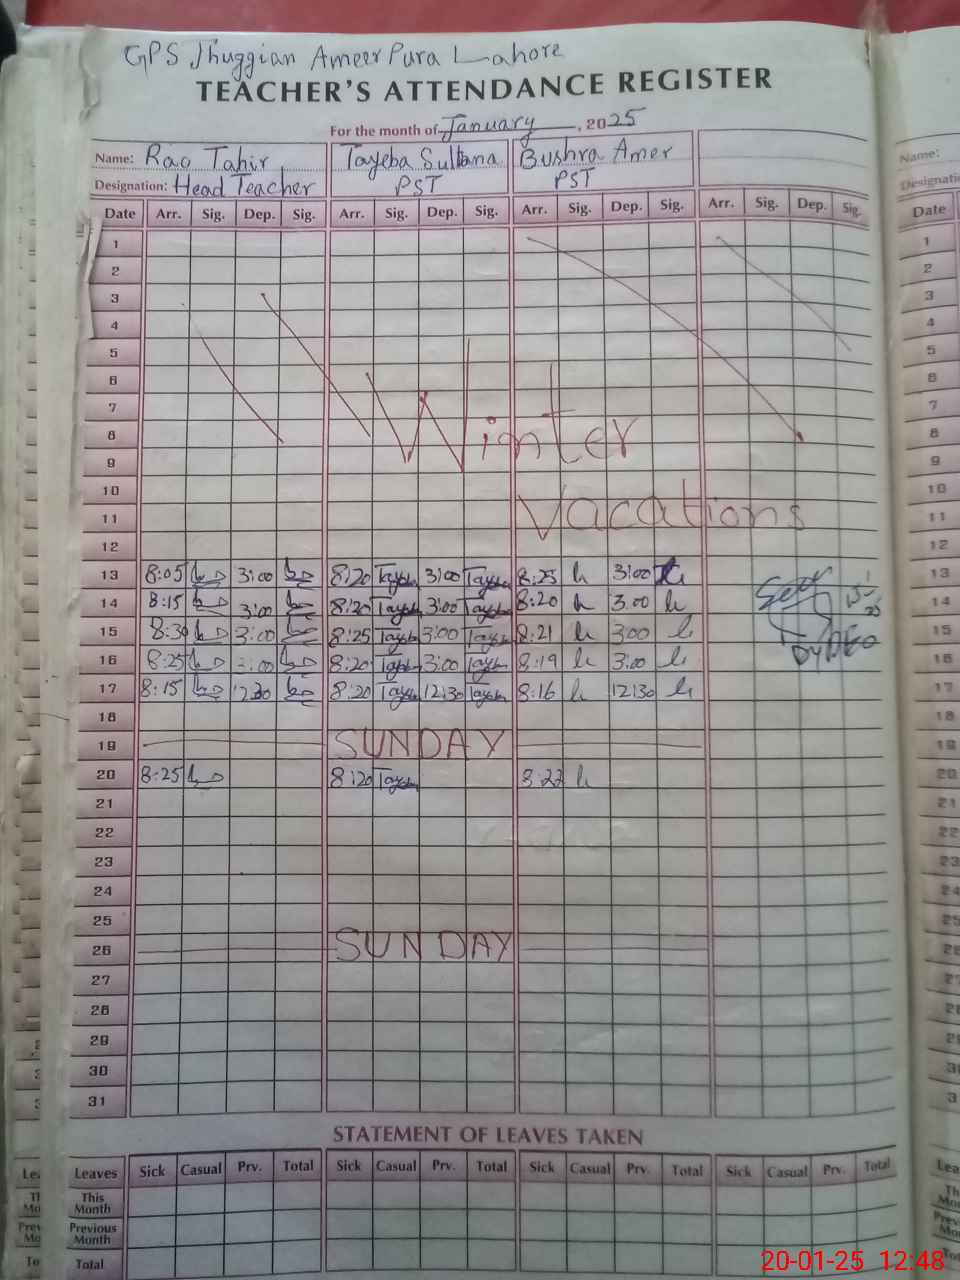 GPS Jhuggian Ameer Pura Lahore
TEACHER'S ATTENDANCE REGISTER
For the month of January, 2025
Name: Rao Tahir Tayeba Sultana Bushra Amer
Designation: Head Teacher PST PST
Date Arr. Sig. Dep. Sig. Arr. Sig. Dep. Sig. Arr. Sig. Dep. Sig. Arr. Sig. Dep. Sig.
1
2
3
4
5
6
7
8 Winter
9
10
11 Vacations
12
13 8:05 3:00 8:20 Tayeba 3:00 Tayeba 8:25 3:00
14 8:15 3:00 8:20 Tayeba 3:00 Tayeba 8:20 3.00
15 8:30 3:00 8:25 Tayeba 3:00 Tayeba 8:21 3:00
16 8:25 3:00 8:20 Tayeba 3:00 Tayeba 8:19 3:00
17 8:15 12:30 8:20 Tayeba 12:30 Tayeba 8:16 12:30
18
19 SUNDAY
20 8:25 8:20 Tayeba 8:22
21
22
23
24
25
26 SUNDAY
27
28
29
30
31
STATEMENT OF LEAVES TAKEN
Leaves Sick Casual Prv. Total Sick Casual Prv. Total Sick Casual Prv. Total Sick Casual Prv. Total
This Month
Previous Month
Total
Name:
Date
1
2
3
4
5
6
7
8
9
10
11
12
13
14
15
16
17
18
19
20
21
22
23
24
25
26
27
20-01-25 12:48